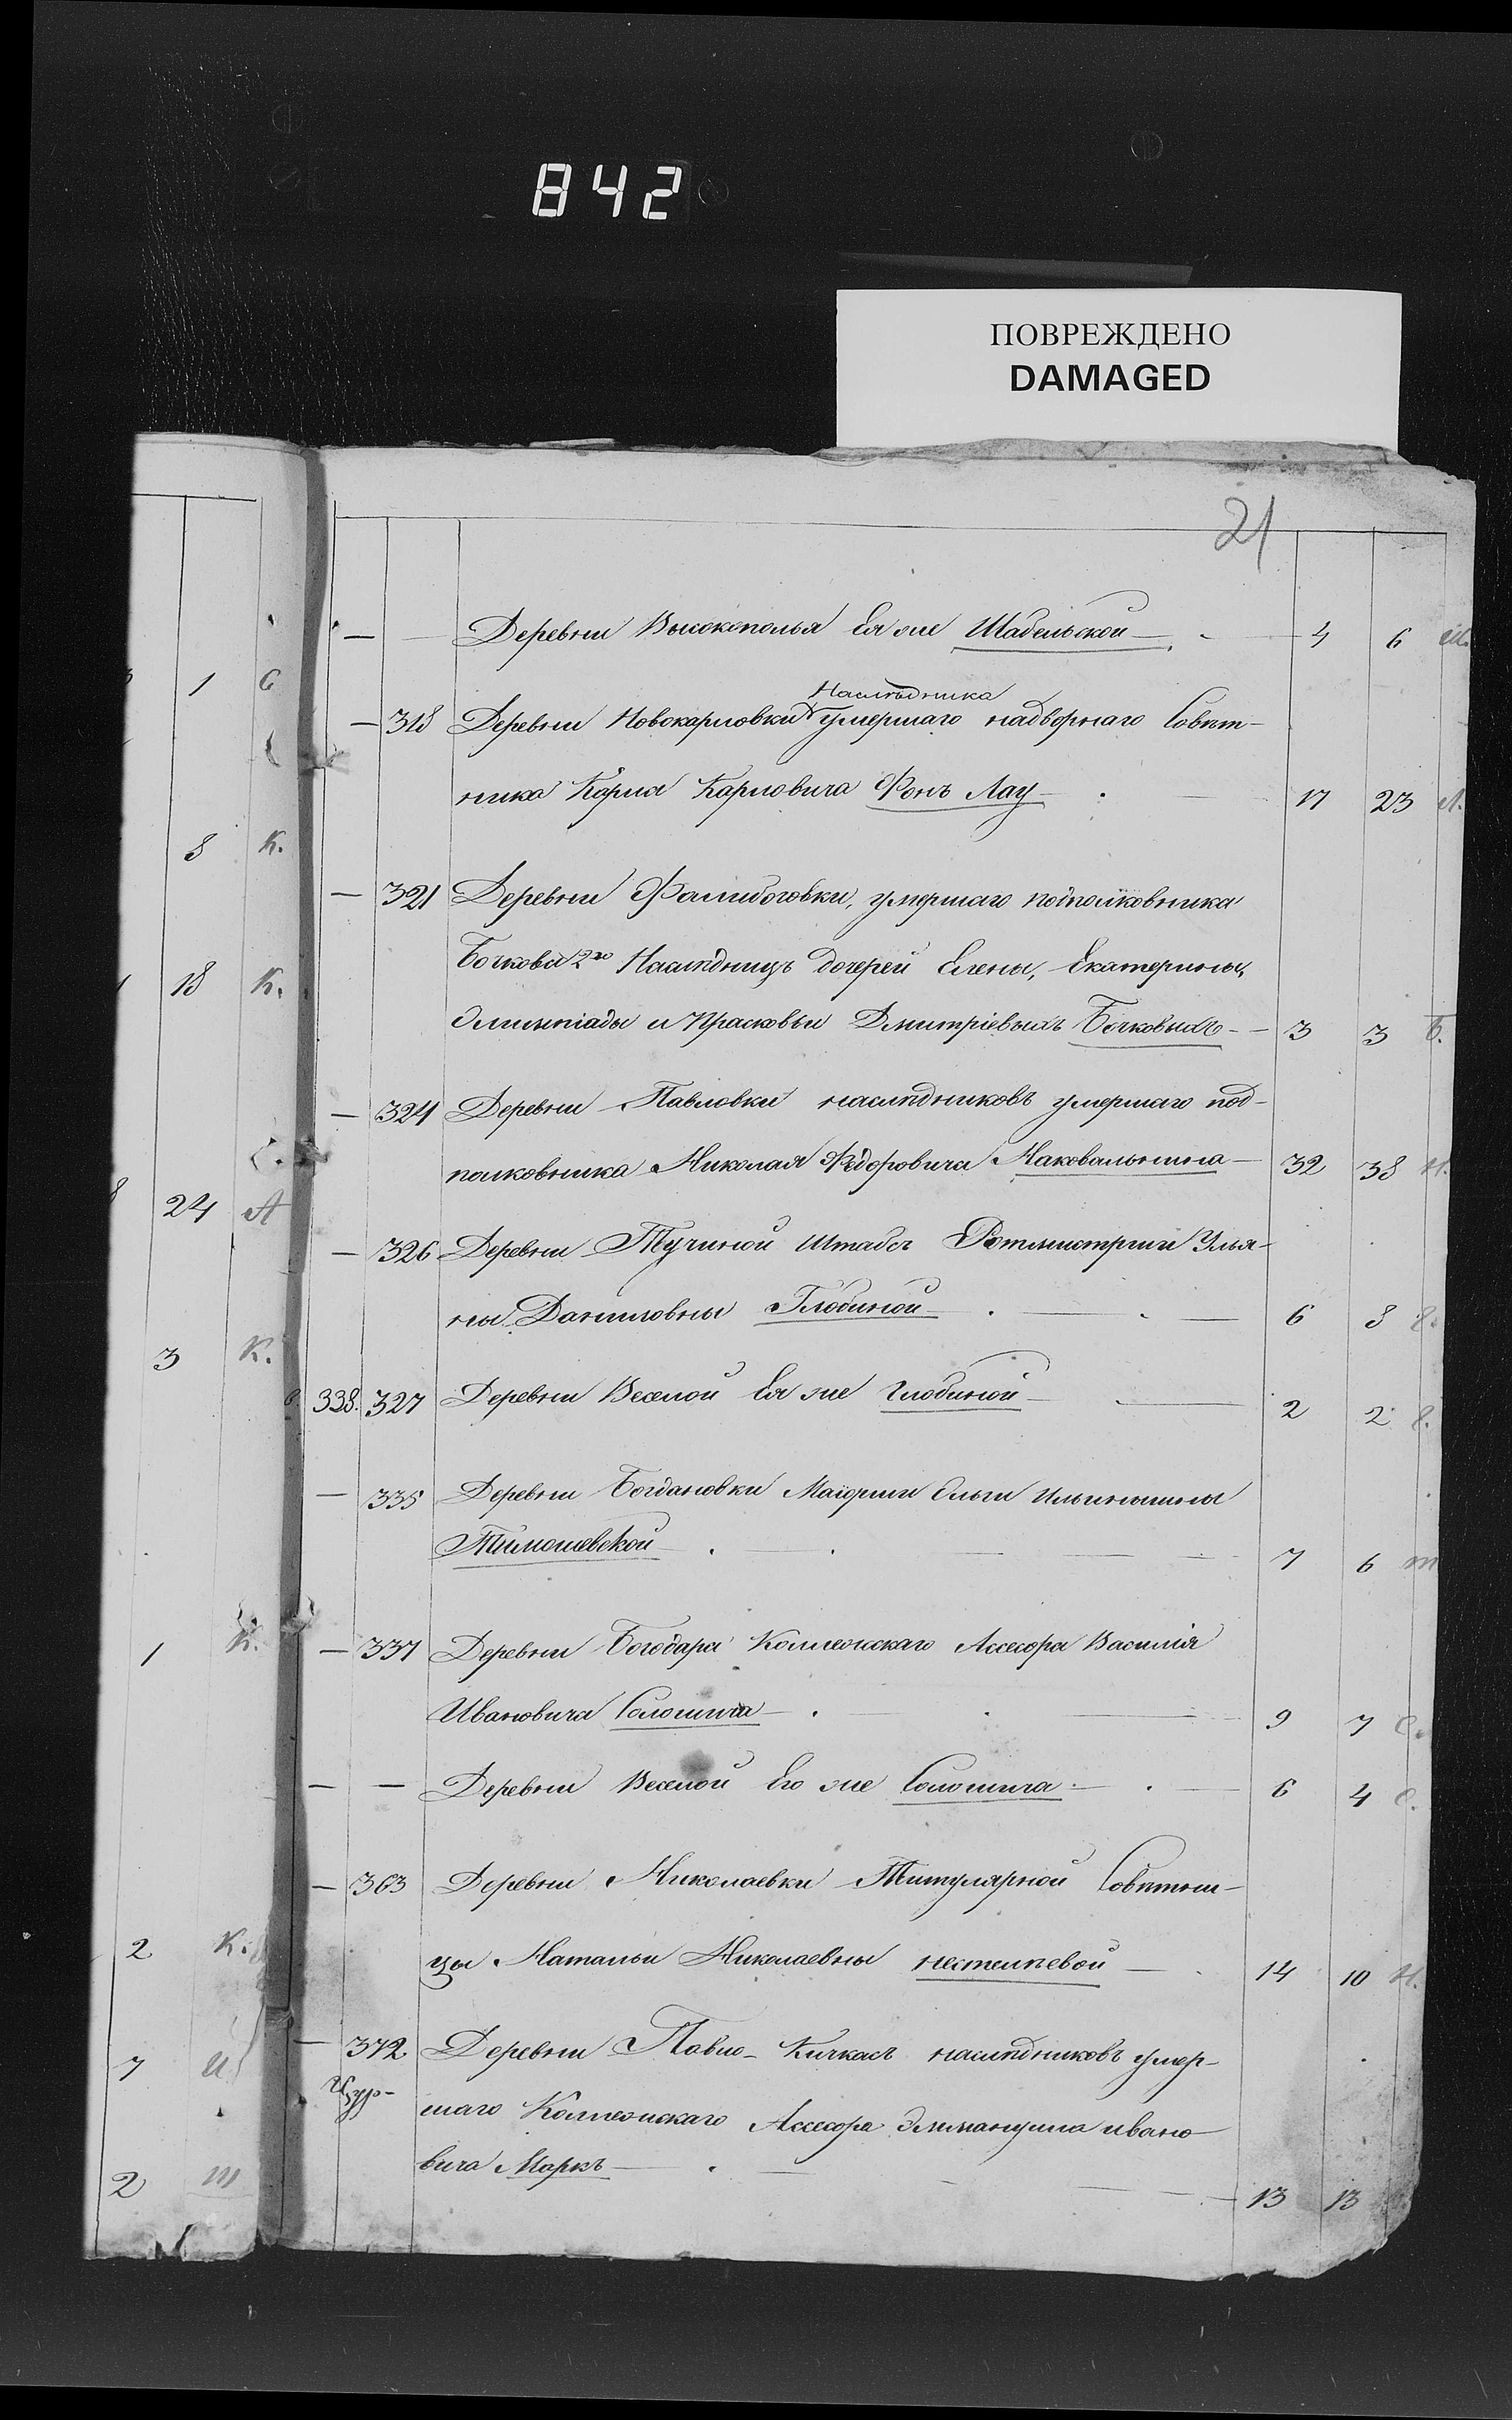 842
ПОВРЕЖДЕНО
DAMAGED
21
— — Деревни Высокополья Ея же Шабельской — 4 6 Ш.
Наслѣдника
— 318 Деревни Новокарловки умершаго надворнаго Совѣт-
ника Карла Карловича Фонъ Лау — 17 23 Л.
— 321 Деревни Фалибоговки, умершаго подполковника
Бочкова 2го Наслѣдницъ дочерей Елены, Екатерины,
Олимпіады и Прасковьи Дмитріевыхъ Бочковыхъ — 3 3 Б.
— 324 Деревни Павловки наслѣдниковъ умершаго под-
полковника Николая Федоровича Наковальнина — 32 38 Н.
— 326 Деревни Тучиной Штабсъ Ротмистрши Улья-
ны Даниловны Глобиной — 6 8 Г.
338. 327 Деревни Веселой Ея же Глобиной — 2 2 Г.
— 335 Деревни Богдановки Маіорши Ольги Ильинишны
Тимошевской — 7 6 Т
— 337 Деревни Богодара Коллежскаго Ассесора Василія
Ивановича Солошича — 9 7 С.
— — Деревни Веселой Его же Солошича — 6 4 С.
— 363 Деревни Николаевки Титулярной Совѣтни-
цы Натальи Николаевны Нестелѣевой — 14 10 Н.
— 372 Деревни Павло-Кичкасъ наслѣдниковъ умер-
шаго Коллежскаго Ассесора Эммануила Ивано-
вича Маркъ — 13 13
1 С
8 К.
18 К.
24 А
3 К.
1 К.
2 К.
7 И
2 Ш